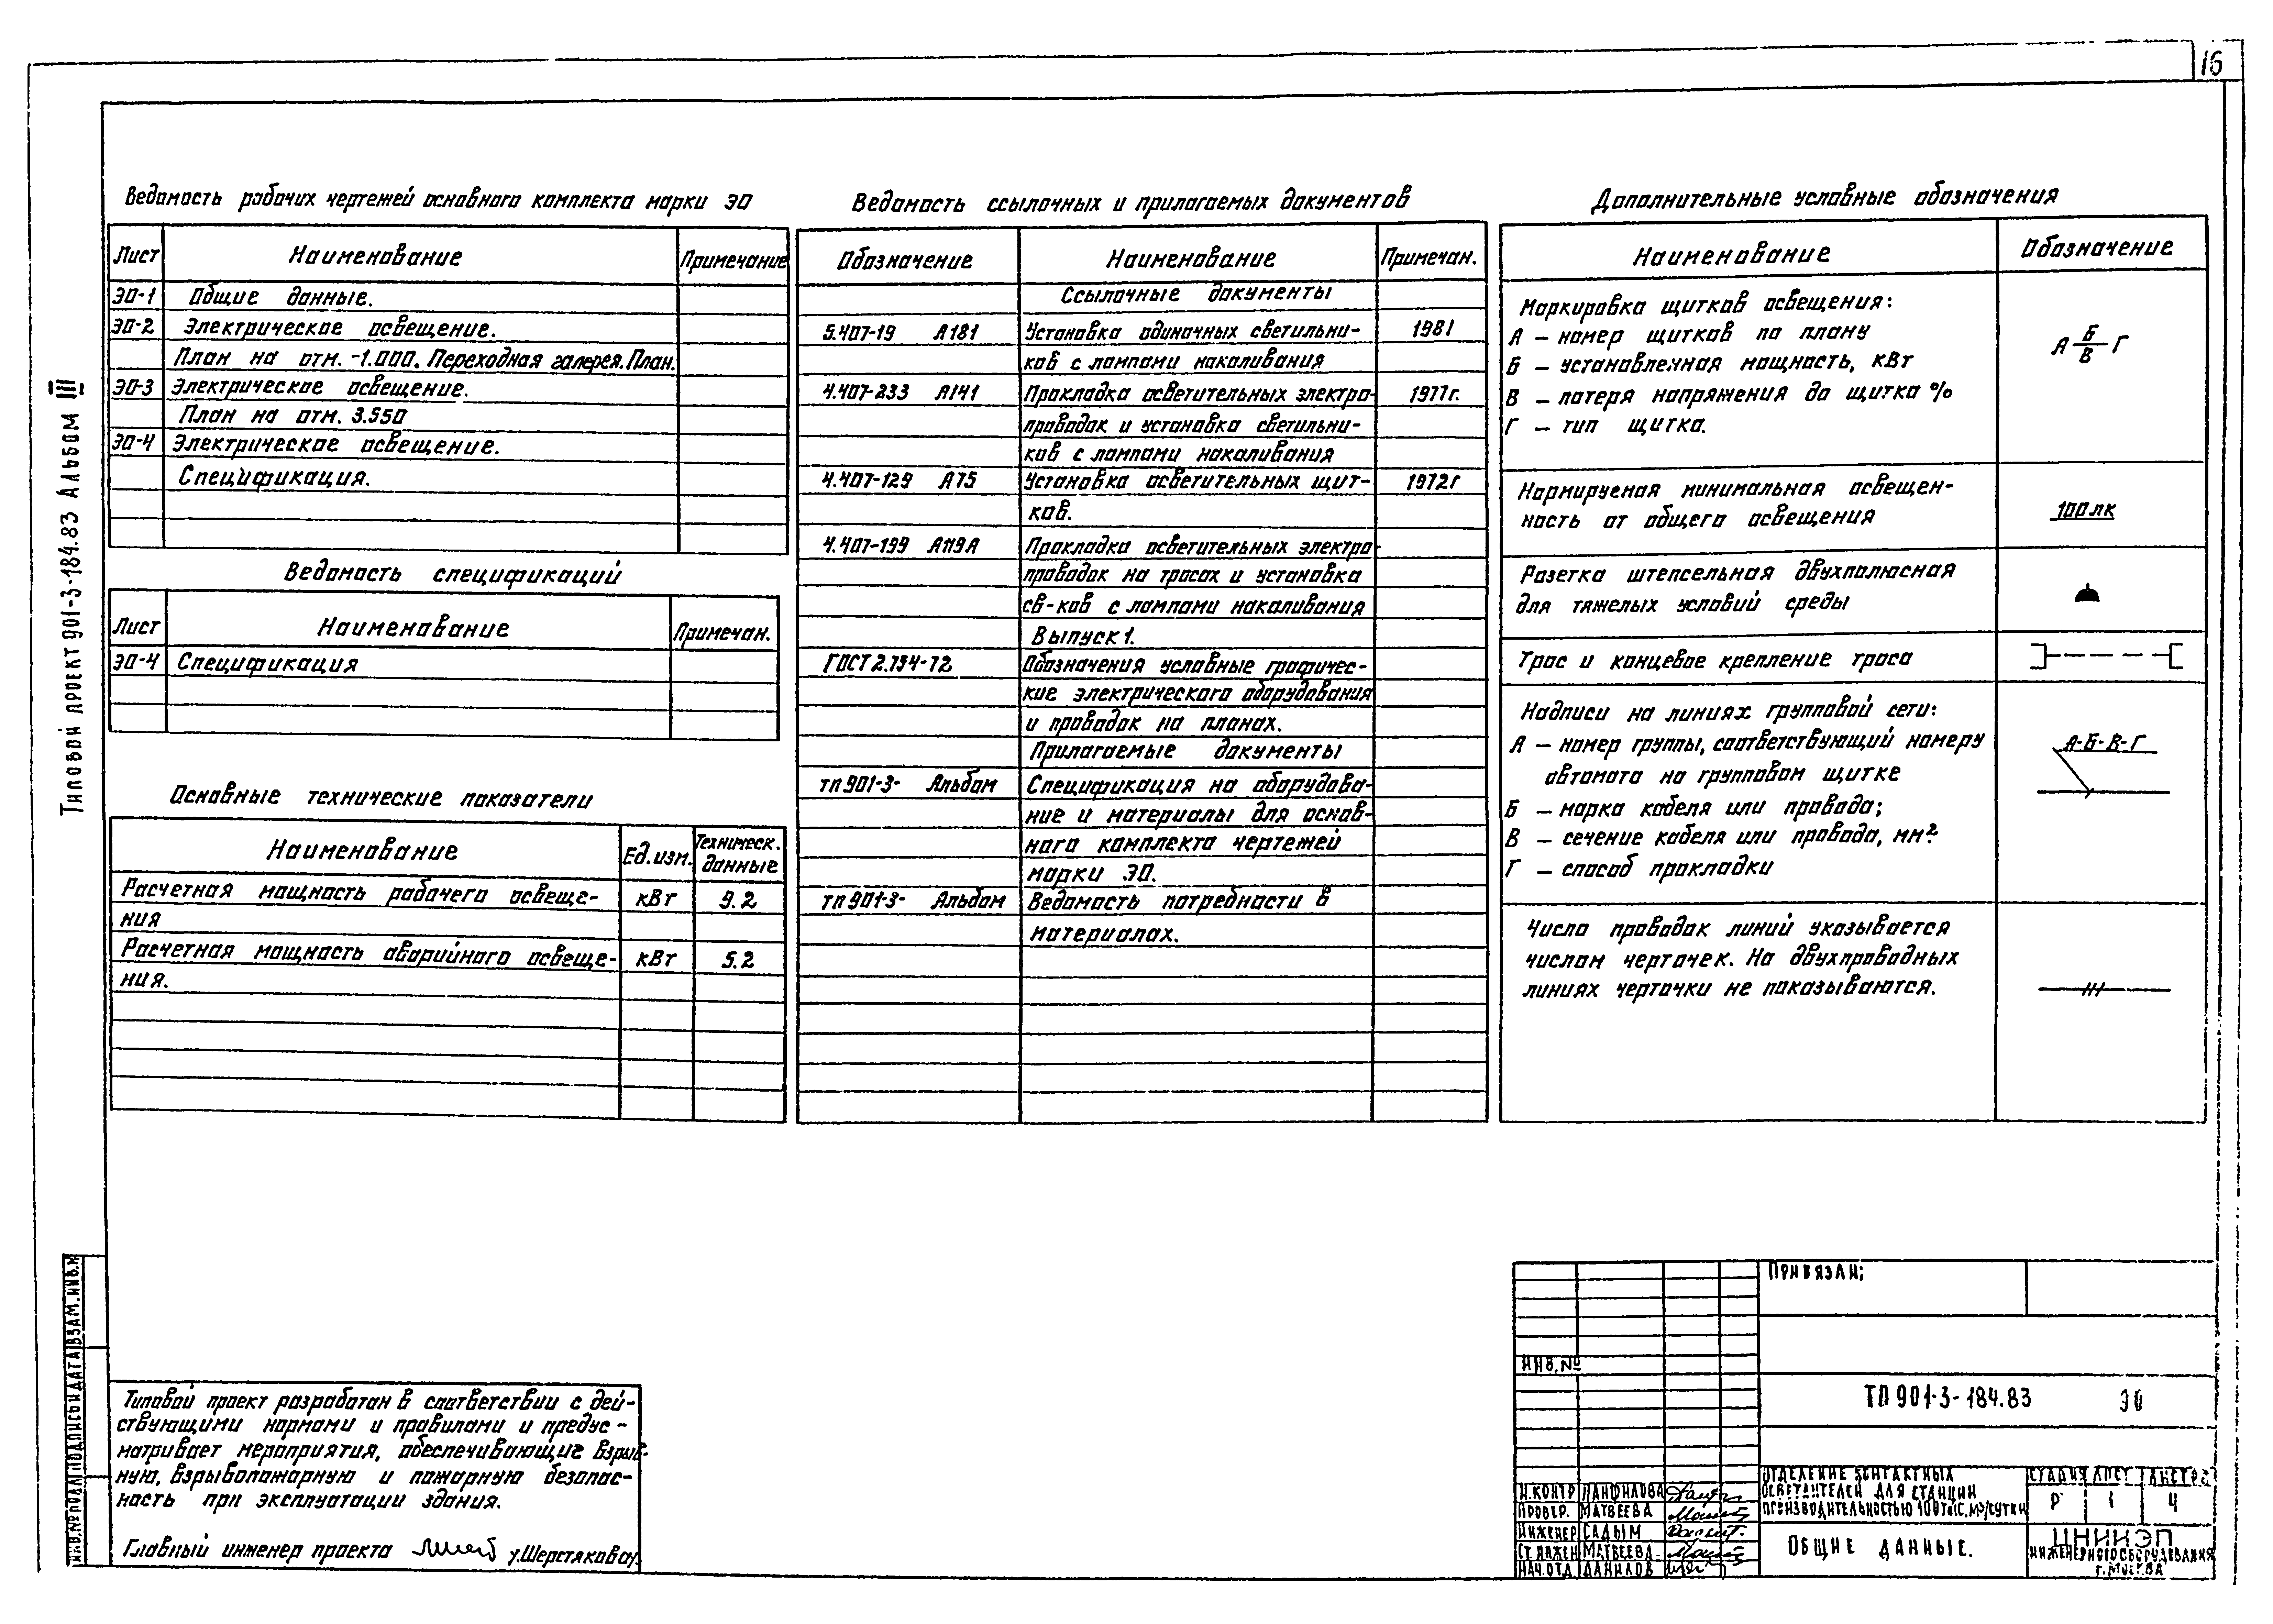 16
Типовой проект 901-3-184.83 Альбом III
Ведомость рабочих чертежей основного комплекта марки ЭО
Лист Наименование Примечание
ЭО-1 Общие данные.
ЭО-2 Электрическое освещение.
План на отм. -1.000. Переходная галерея. План.
ЭО-3 Электрическое освещение.
План на отм. 3.550
ЭО-4 Электрическое освещение.
Спецификация.
Ведомость спецификаций
Лист Наименование Примечан.
ЭО-4 Спецификация
Основные технические показатели
Наименование Ед.изм. Техническ. данные
Расчетная мощность рабочего освеще- кВт 9.2
ния
Расчетная мощность аварийного освеще- кВт 5.2
ния.
Ведомость ссылочных и прилагаемых документов
Обозначение Наименование Примечан.
Ссылочные документы
5.407-19 А181 Установка одиночных светильни- 1981
ков с лампами накаливания
4.407-233 А141 Прокладка осветительных электро- 1977г.
проводок и установка светильни-
ков с лампами накаливания
4.407-129 А75 Установка осветительных щит- 1972г
ков.
4.407-199 А119А Прокладка осветительных электро-
проводок на тросах и установка
св-ков с лампами накаливания
Выпуск 1.
ГОСТ 2.754-72 Обозначения условные графичес-
кие электрического оборудования
и проводок на планах.
Прилагаемые документы
тп 901-3- Альбом Спецификация на оборудова-
ние и материалы для основ-
ного комплекта чертежей
марки ЭО.
тп 901-3- Альбом Ведомость потребности в
материалах.
Дополнительные условные обозначения
Наименование Обозначение
Маркировка щитков освещения:
А – номер щитков по плану
Б – установленная мощность, кВт
В – потеря напряжения до щитка %
Г – тип щитка.
А Б/В Г
Нормируемая минимальная освещен-
ность от общего освещения
100лк
Розетка штепсельная двухполюсная
для тяжелых условий среды
Трос и концевое крепление троса
Надписи на линиях групповой сети:
А – номер группы, соответствующий номеру
автомата на групповом щитке
Б – марка кабеля или провода;
В – сечение кабеля или провода, мм²
Г – способ прокладки
А-Б-В-Г
Число проводок линий указывается
числом черточек. На двухпроводных
линиях черточки не показываются.
Типовой проект разработан в соответствии с дей-
ствующими нормами и правилами и предус-
матривает мероприятия, обеспечивающие взрыв-
ную, взрывопожарную и пожарную безопас-
ность при эксплуатации здания.
Главный инженер проекта /Шерстякова/.
ИНВ.№ПОДЛ ПОДПИСЬ И ДАТА ВЗАМ.ИНВ.№
ПРИВЯЗАН:
ИНВ.№
ТП 901-3-184.83 ЭО
Н.КОНТР ПАНФИЛОВА
ПРОВЕР. МАТВЕЕВА
ИНЖЕНЕР САДЫМ
СТ.ИНЖЕН МАТВЕЕВА
НАЧ.ОТД ДАНИЛОВ
ОТДЕЛЕНИЕ КОНТАКТНЫХ
ОСВЕТЛИТЕЛЕЙ ДЛЯ СТАНЦИИ
ПРОИЗВОДИТЕЛЬНОСТЬЮ 100 ТЫС. М³/СУТКИ
СТАДИЯ ЛИСТ ЛИСТОВ
Р 1 4
ОБЩИЕ ДАННЫЕ.
ЦНИИЭП
ИНЖЕНЕРНОГО ОБОРУДОВАНИЯ
Г. МОСКВА